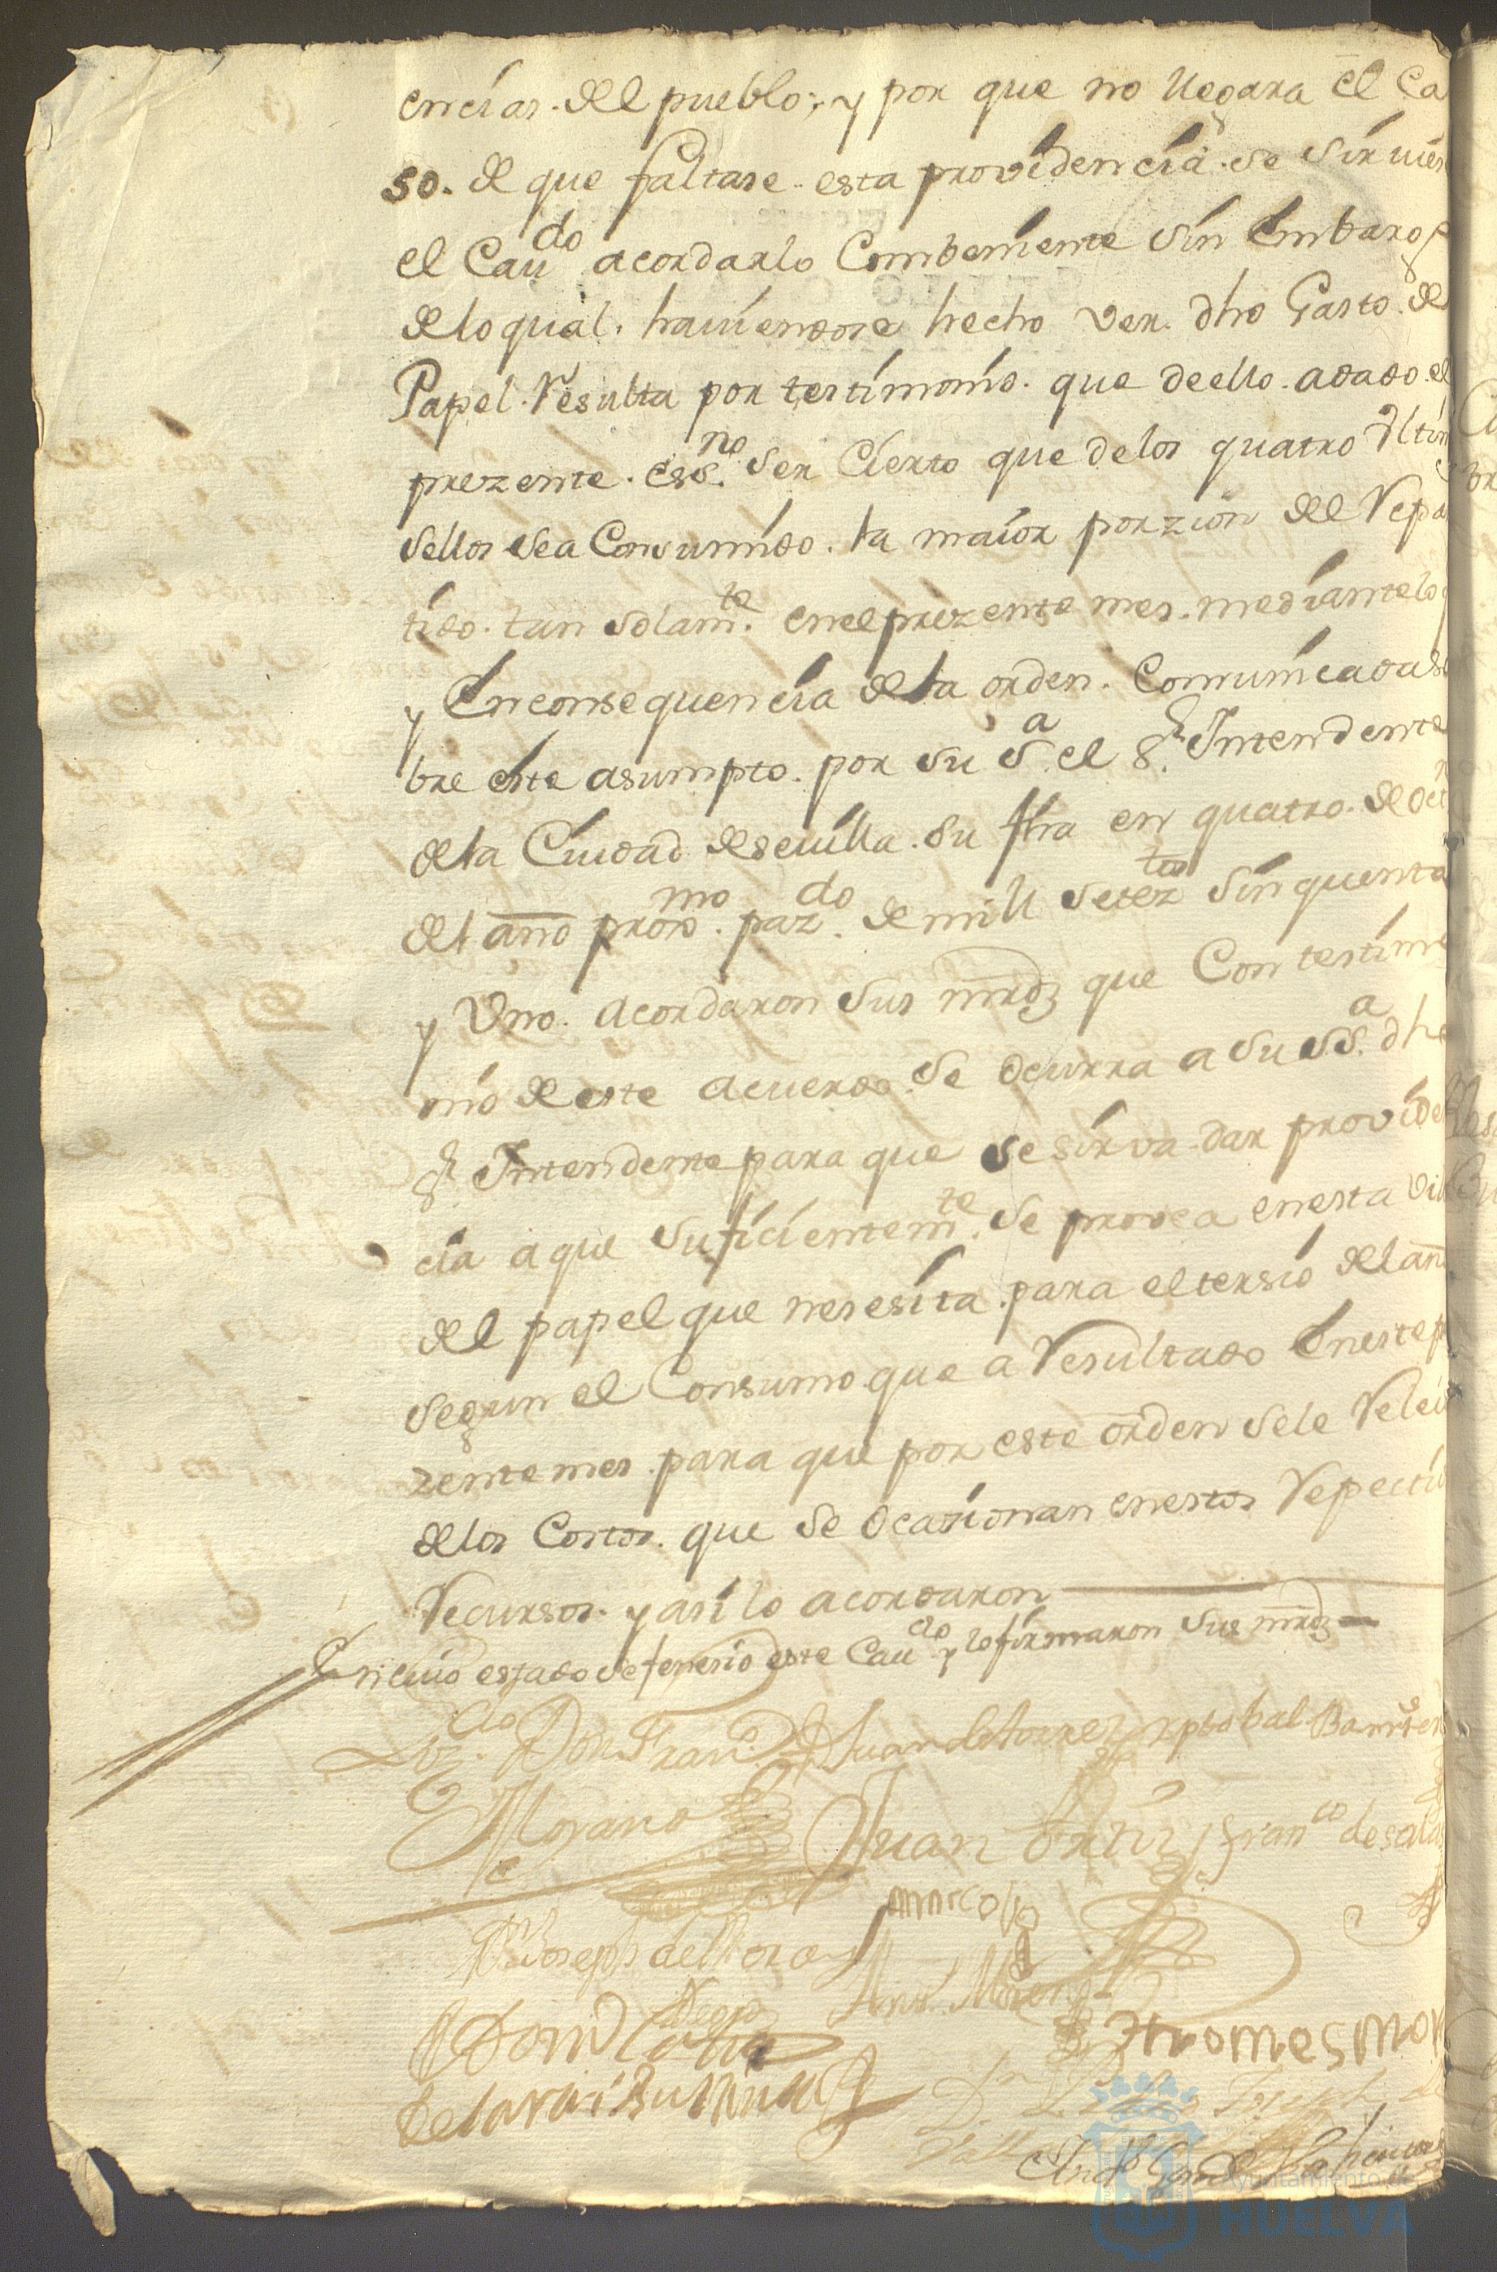 encias. del pueblo; y por que no llegara el Ca
so. de que faltase esta providencia se sirvies
el Cavdo acordarlo Combeniente sin Embargo
de lo qual. haviendose hecho ver. dho Gasto. de
Papel. Resulta por testimonio. que de ello. a dado. el
prezente. essno. ser Cierto que de los quatro Ultim
sellos se a Consumido. la maior porzion del Repa
tido. tan solamte. en el prezente mes. mediante lo q
y En consequencia de la orden. Comunicada so
bre este asumpto. por su Sa. el Sr. Intendente
de la Ciudad de sevilla. su fha en quatro. de Oct
del año proxmo. pazdo. de mill Seteztos Sinquenta
y Uno. acordaron Sus mrdz que Con testimo
nio de este acuerdo. se ocurra a su SSa. dho
Sr Intendente para que se sirva dar providen
cia a que suficientemte. se provea en esta vill
del papel que nesesita. para el tersio del añ
segun el Consumo que a Resultado En este p
zente mes. para que por este orden se le Relev
de los Costos. que se ocasionan en estos Repecti
Recursos. y asi lo acordaron
En cuio estado se fenesio este Cavdo y lo firmaron Sus mrdz
Lizdo. Don Franco Juan de torres xptobal Barr
Moyano Juan Ortiz Franco de salas
Marcos
Joseph del
Anto. More
Don Diego
thomes mor
Dn Joseph de